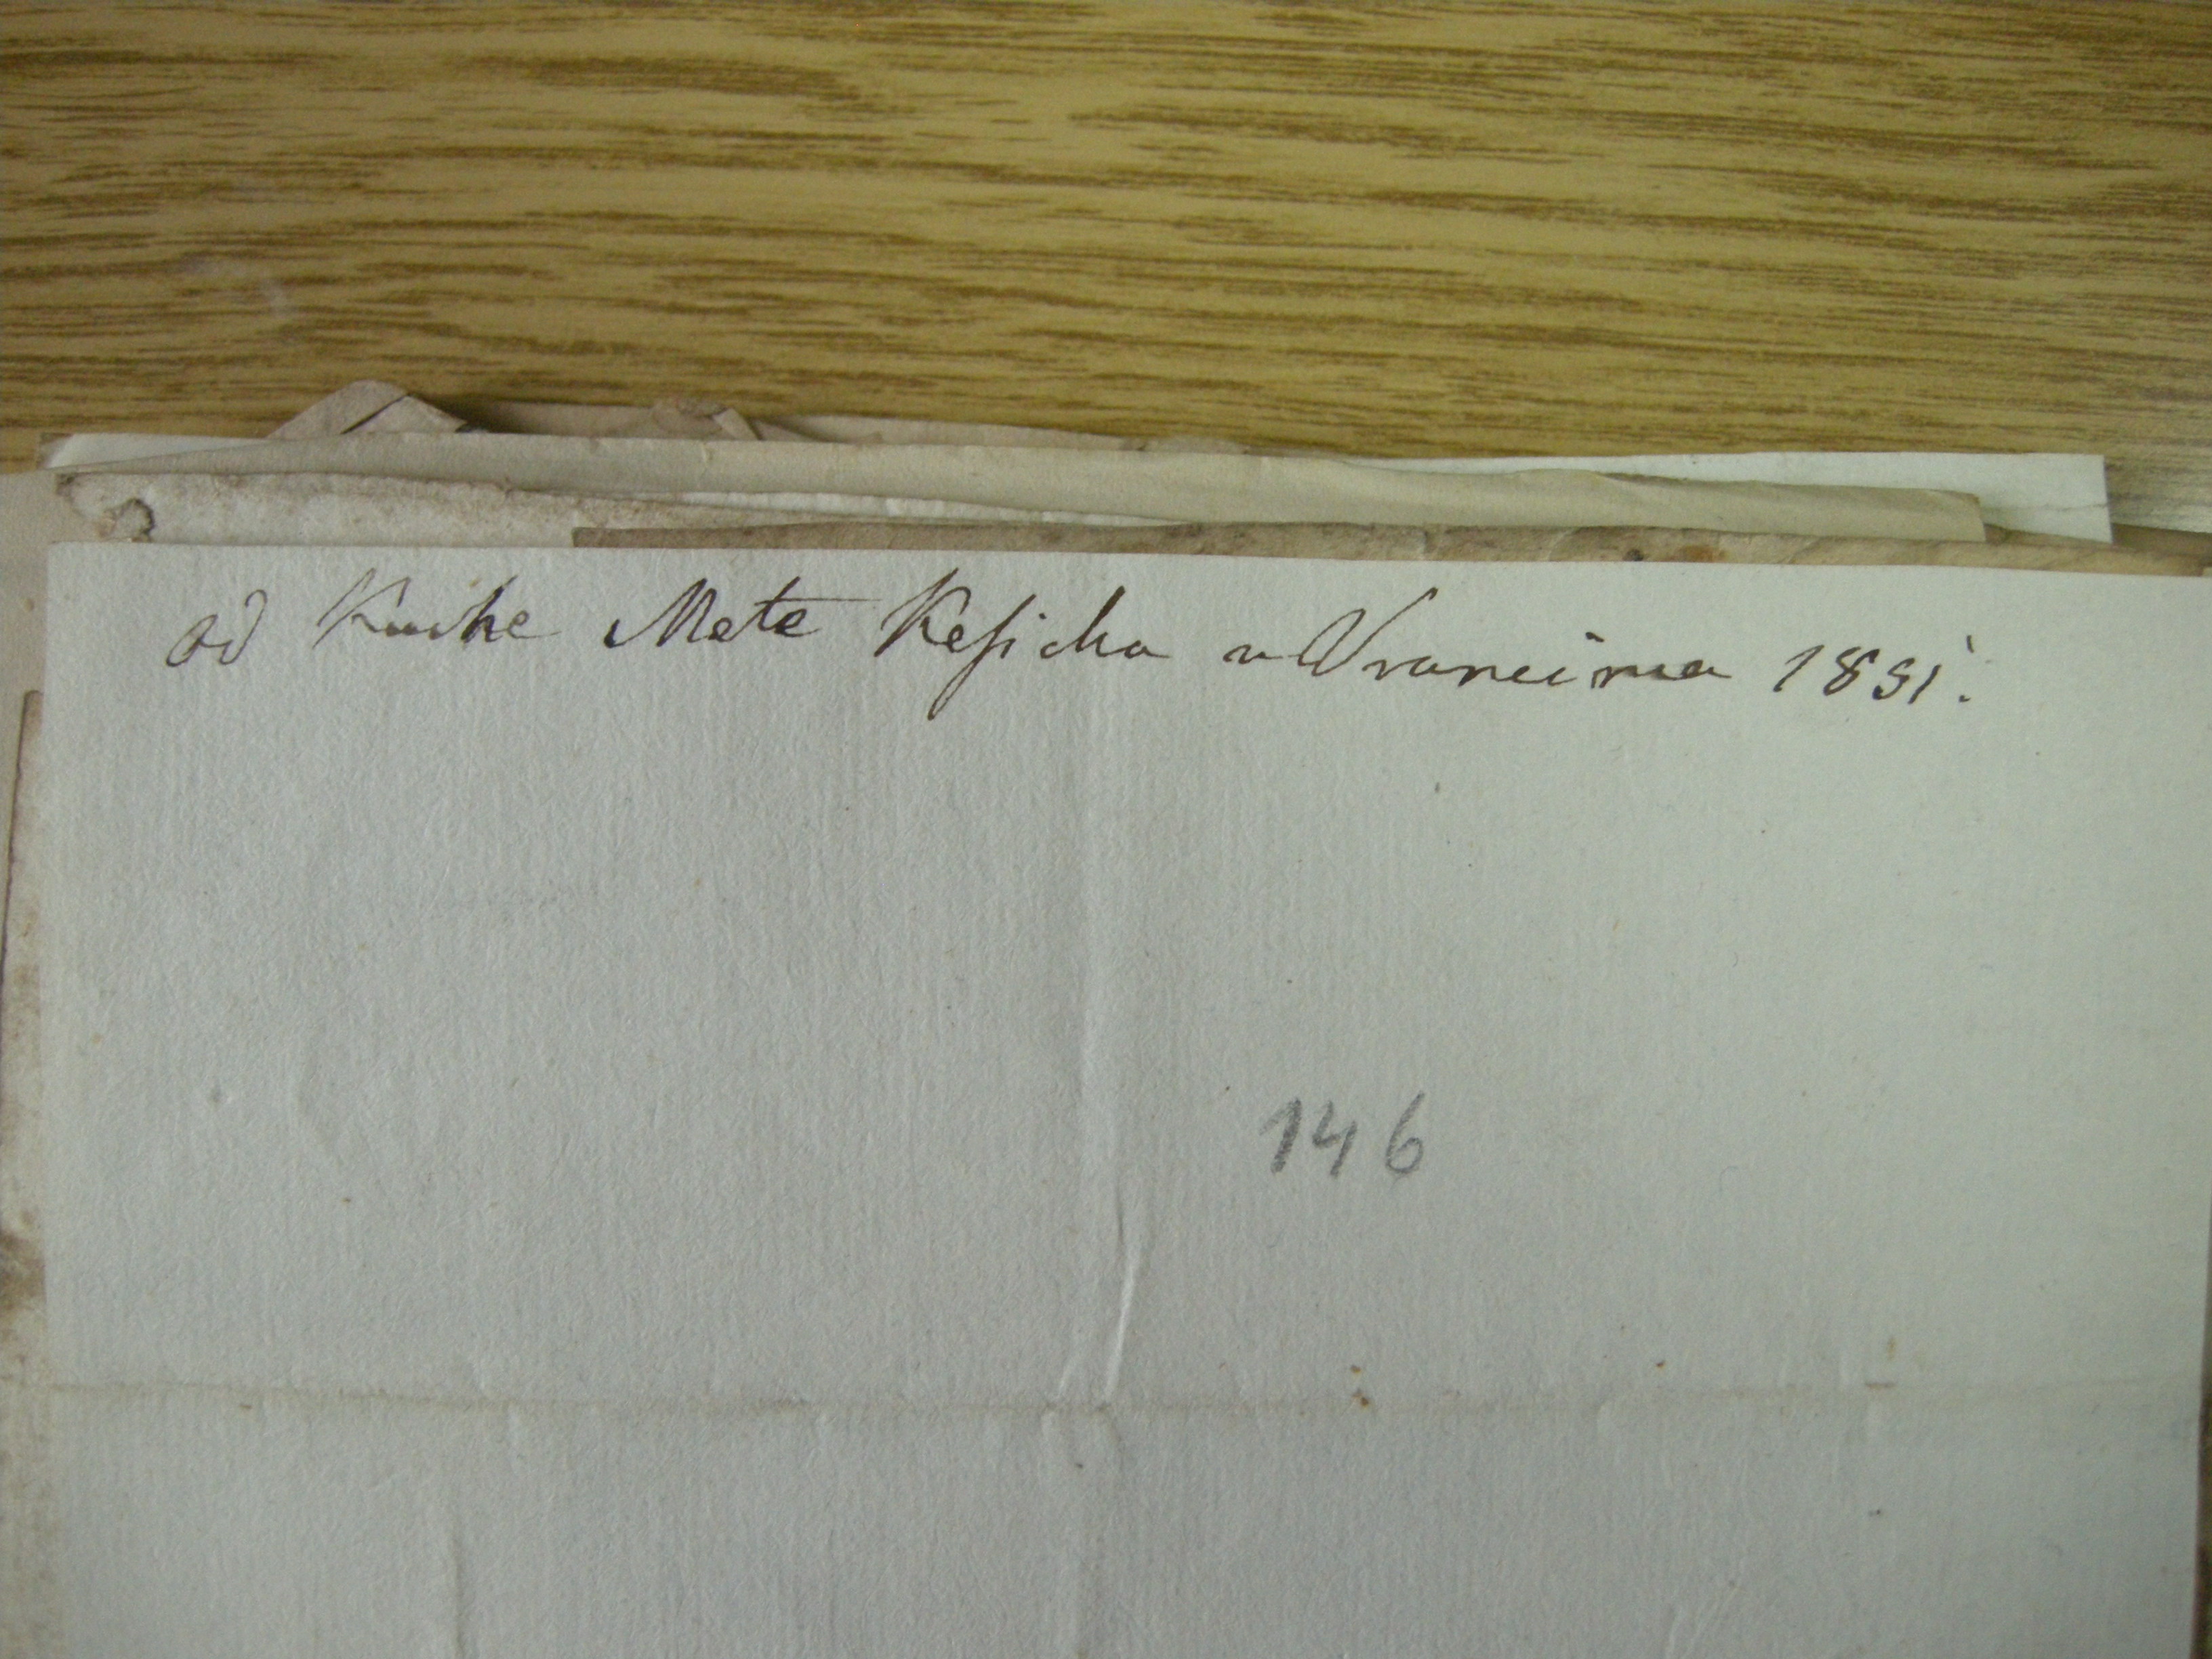 od Kuche Mate Kesicha u Vrancima 1831.
146